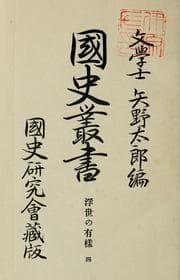 文學士 矢野太郎編
國史叢書
浮世の有樣 四
國史研究會藏版